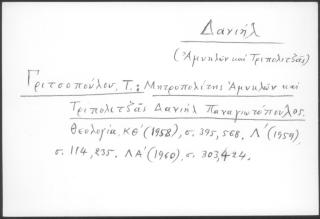 Δανιήλ
(Ἀμυκλῶν καὶ Τριπολιτζᾶς)
Γριτσοπούλου, Τ.: Μητροπολίτης Ἀμυκλῶν καὶ
Τριπολιτζᾶς Δανιήλ Παναγιωτόπουλος.
Θεολογία, ΚΘ΄(1958), σ. 395, 568. Λ΄(1959),
σ. 114, 235. ΛΑ΄(1960), σ. 303, 424.